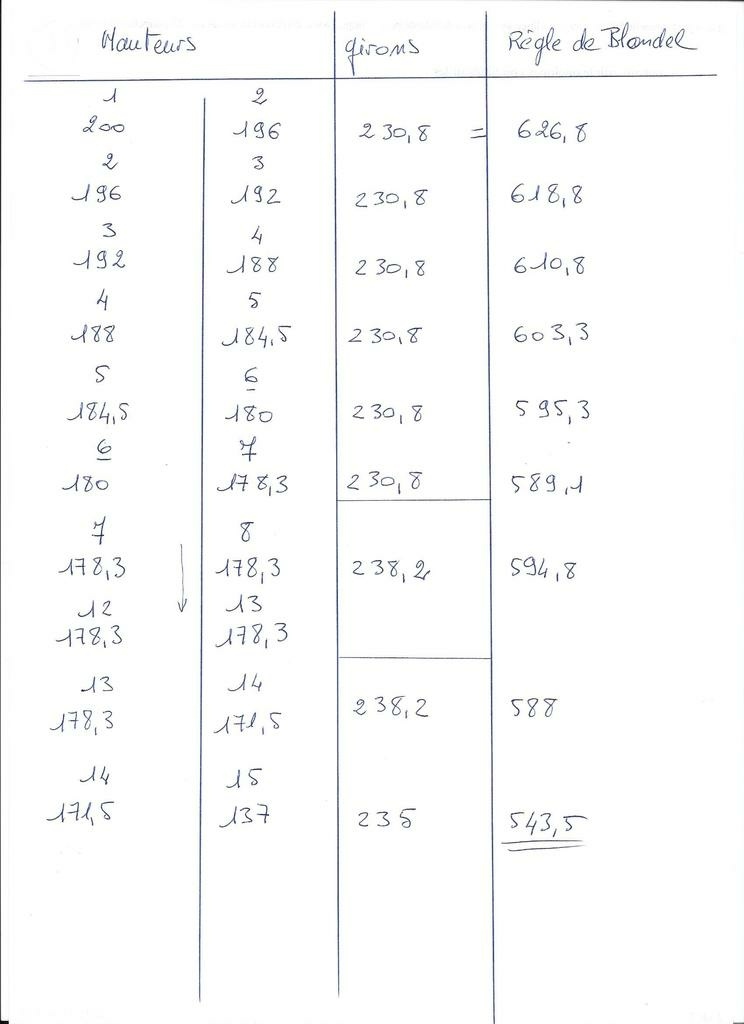 Hauteurs girons Règle de Blondel
1 2
200 196 230,8 = 626,8
2 3
196 192 230,8 618,8
3 4
192 188 230,8 610,8
4 5
188 184,5 230,8 603,3
5 6
184,5 180 230,8 595,3
6 7
180 178,3 230,8 589,1
7 8
178,3 178,3 238,2 594,8
12 13
178,3 178,3
13 14
178,3 171,5 238,2 588
14 15
171,5 137 235 543,5